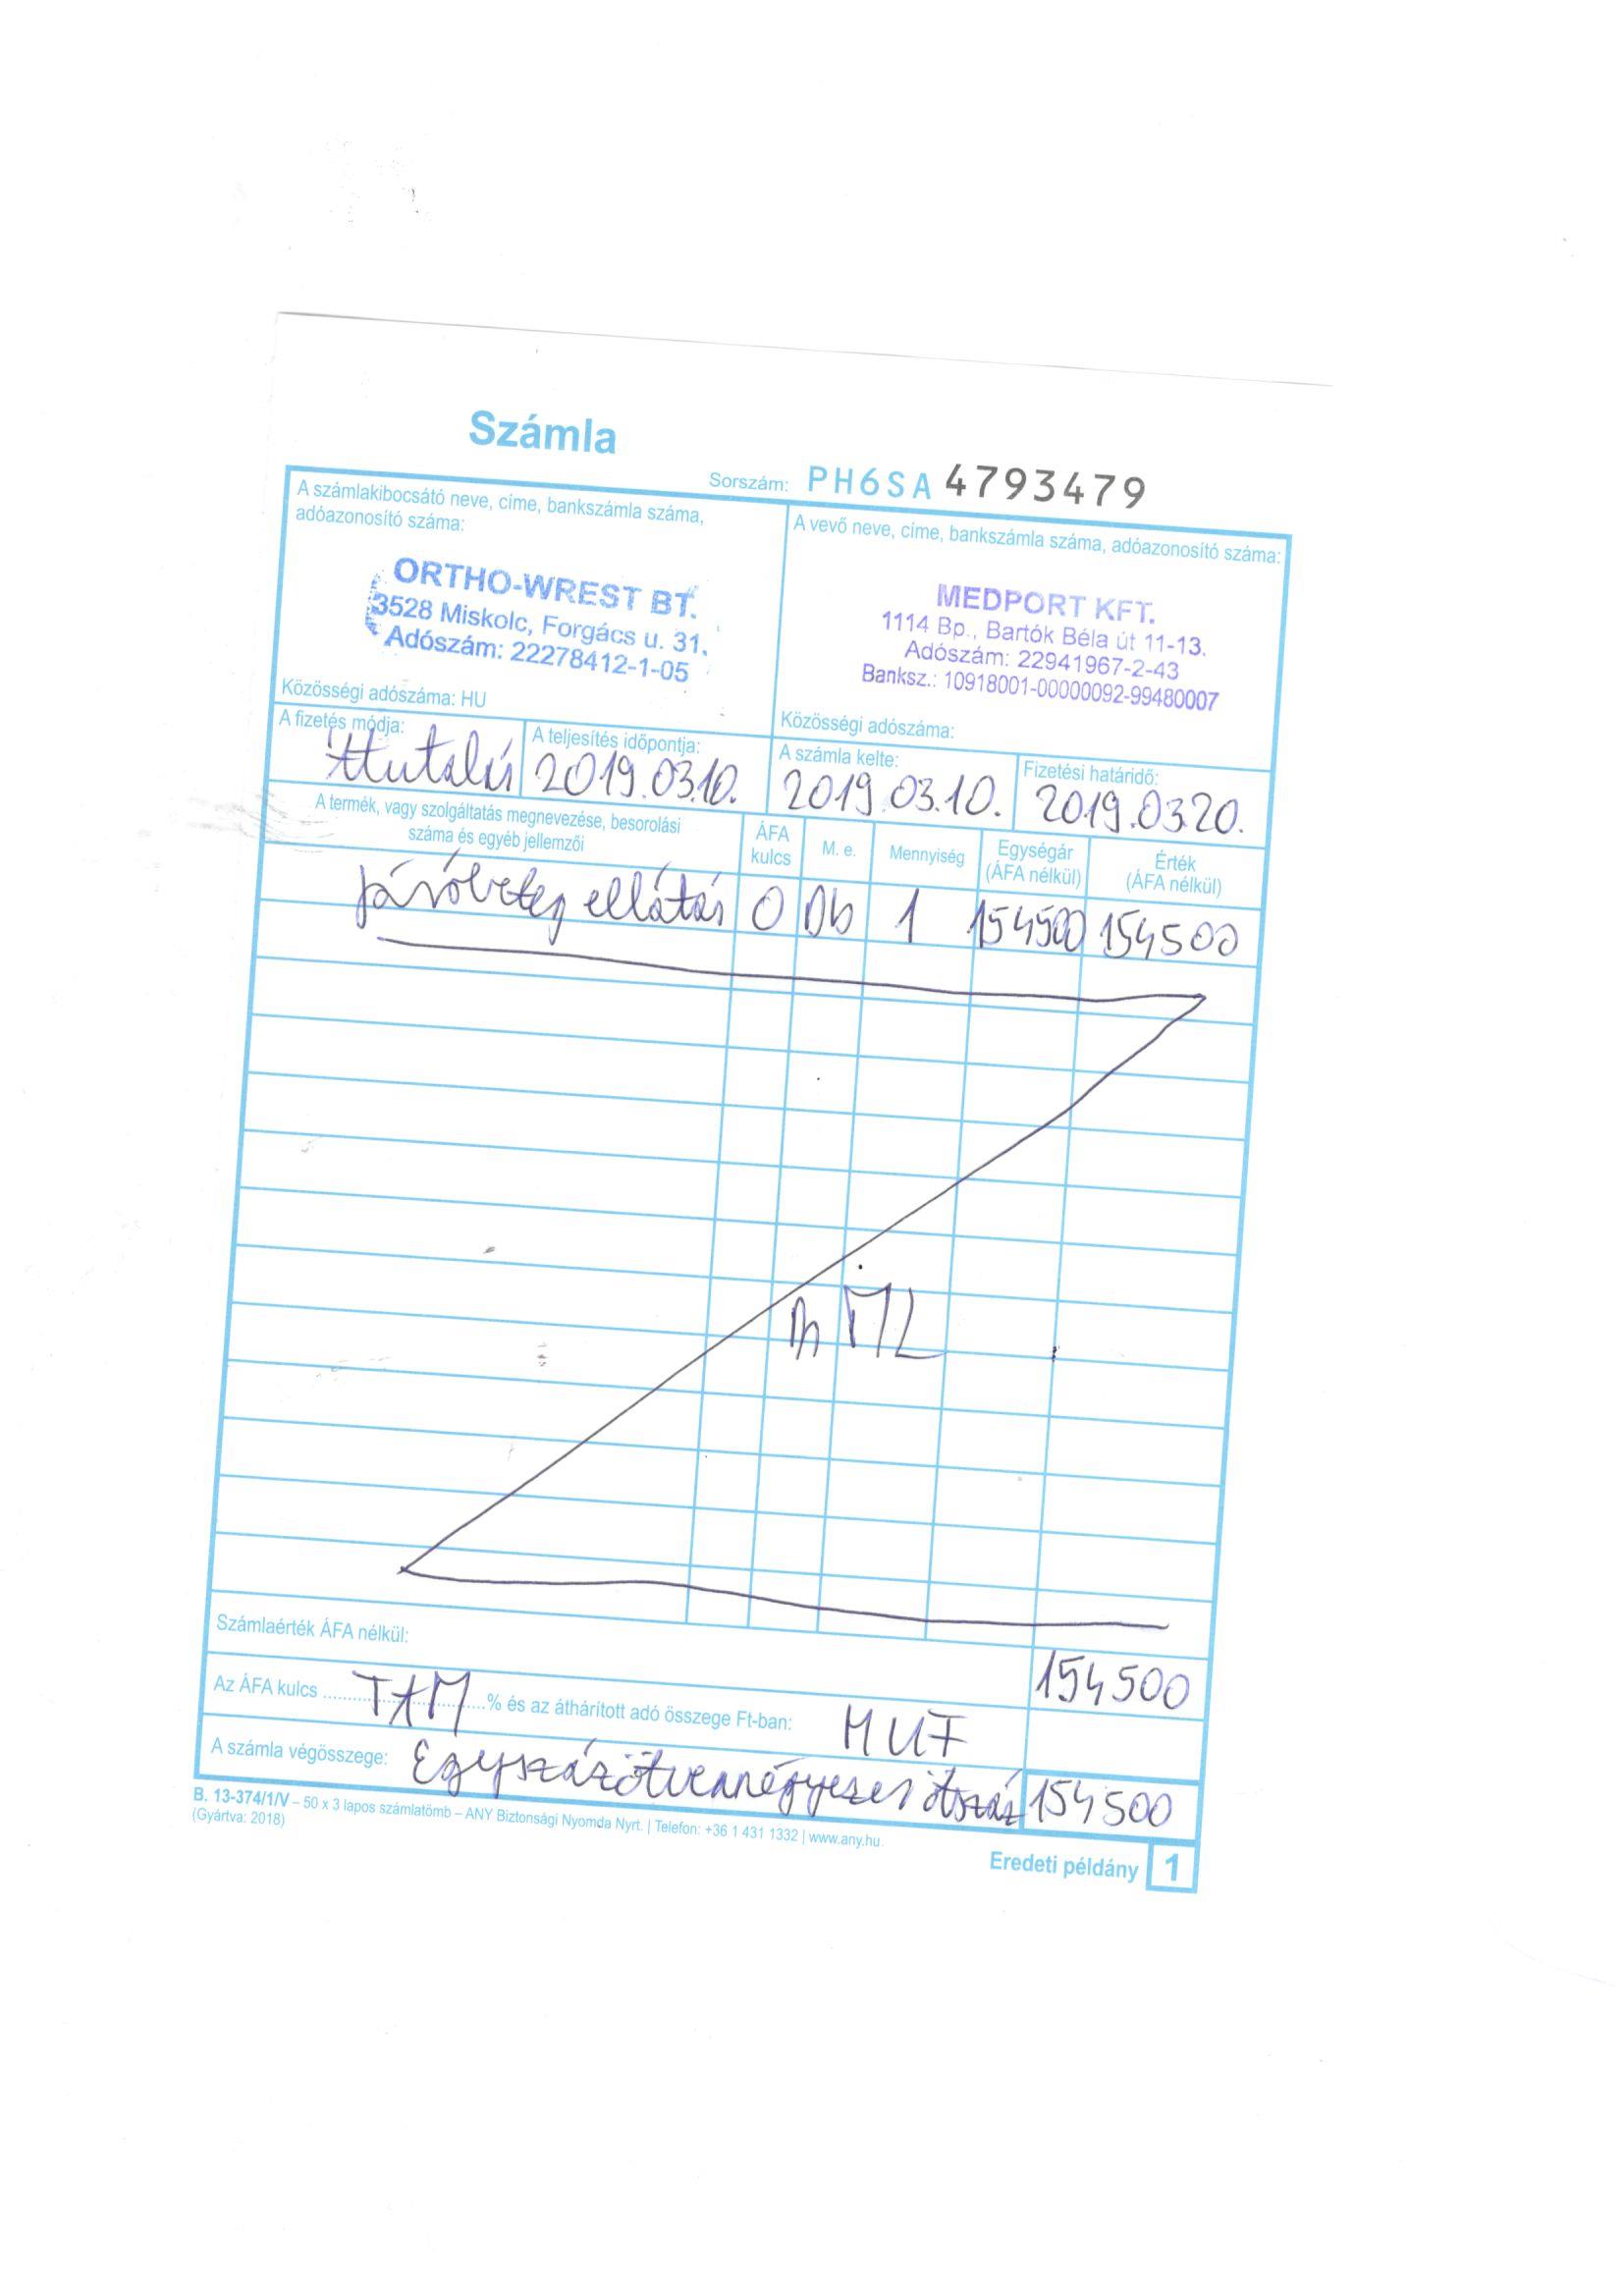 Számla
Sorszám: PH6SA 4793479
A számlakibocsátó neve, címe, bankszámla száma,
adóazonosító száma:
ORTHO-WREST BT.
3528 Miskolc, Forgács u. 31.
Adószám: 22278412-1-05
Közösségi adószáma: HU
A vevő neve, címe, bankszámla száma, adóazonosító száma:
MEDPORT KFT.
1114 Bp., Bartók Béla út 11-13.
Adószám: 22941967-2-43
Banksz.: 10918001-00000092-99480007
Közösségi adószáma:
A fizetés módja:
Átutalás
A teljesítés időpontja:
2019.03.10.
A számla kelte:
2019.03.10.
Fizetési határidő:
2019.03.20.
A termék, vagy szolgáltatás megnevezése, besorolási
száma és egyéb jellemzői
ÁFA
kulcs
M. e.
Mennyiség
Egységár
(ÁFA nélkül)
Érték
(ÁFA nélkül)
járóbeteg ellátás 0 Db 1 154500 154500
Számlaérték ÁFA nélkül: 154500
Az ÁFA kulcs TAM % és az áthárított adó összege Ft-ban: HUF
A számla végösszege: Egyszázötvennégyezer ötszáz 154500
B. 13-374/1/V – 50 x 3 lapos számlatömb – ANY Biztonsági Nyomda Nyrt. | Telefon: +36 1 431 1332 | www.any.hu
(Gyártva: 2018)
Eredeti példány 1